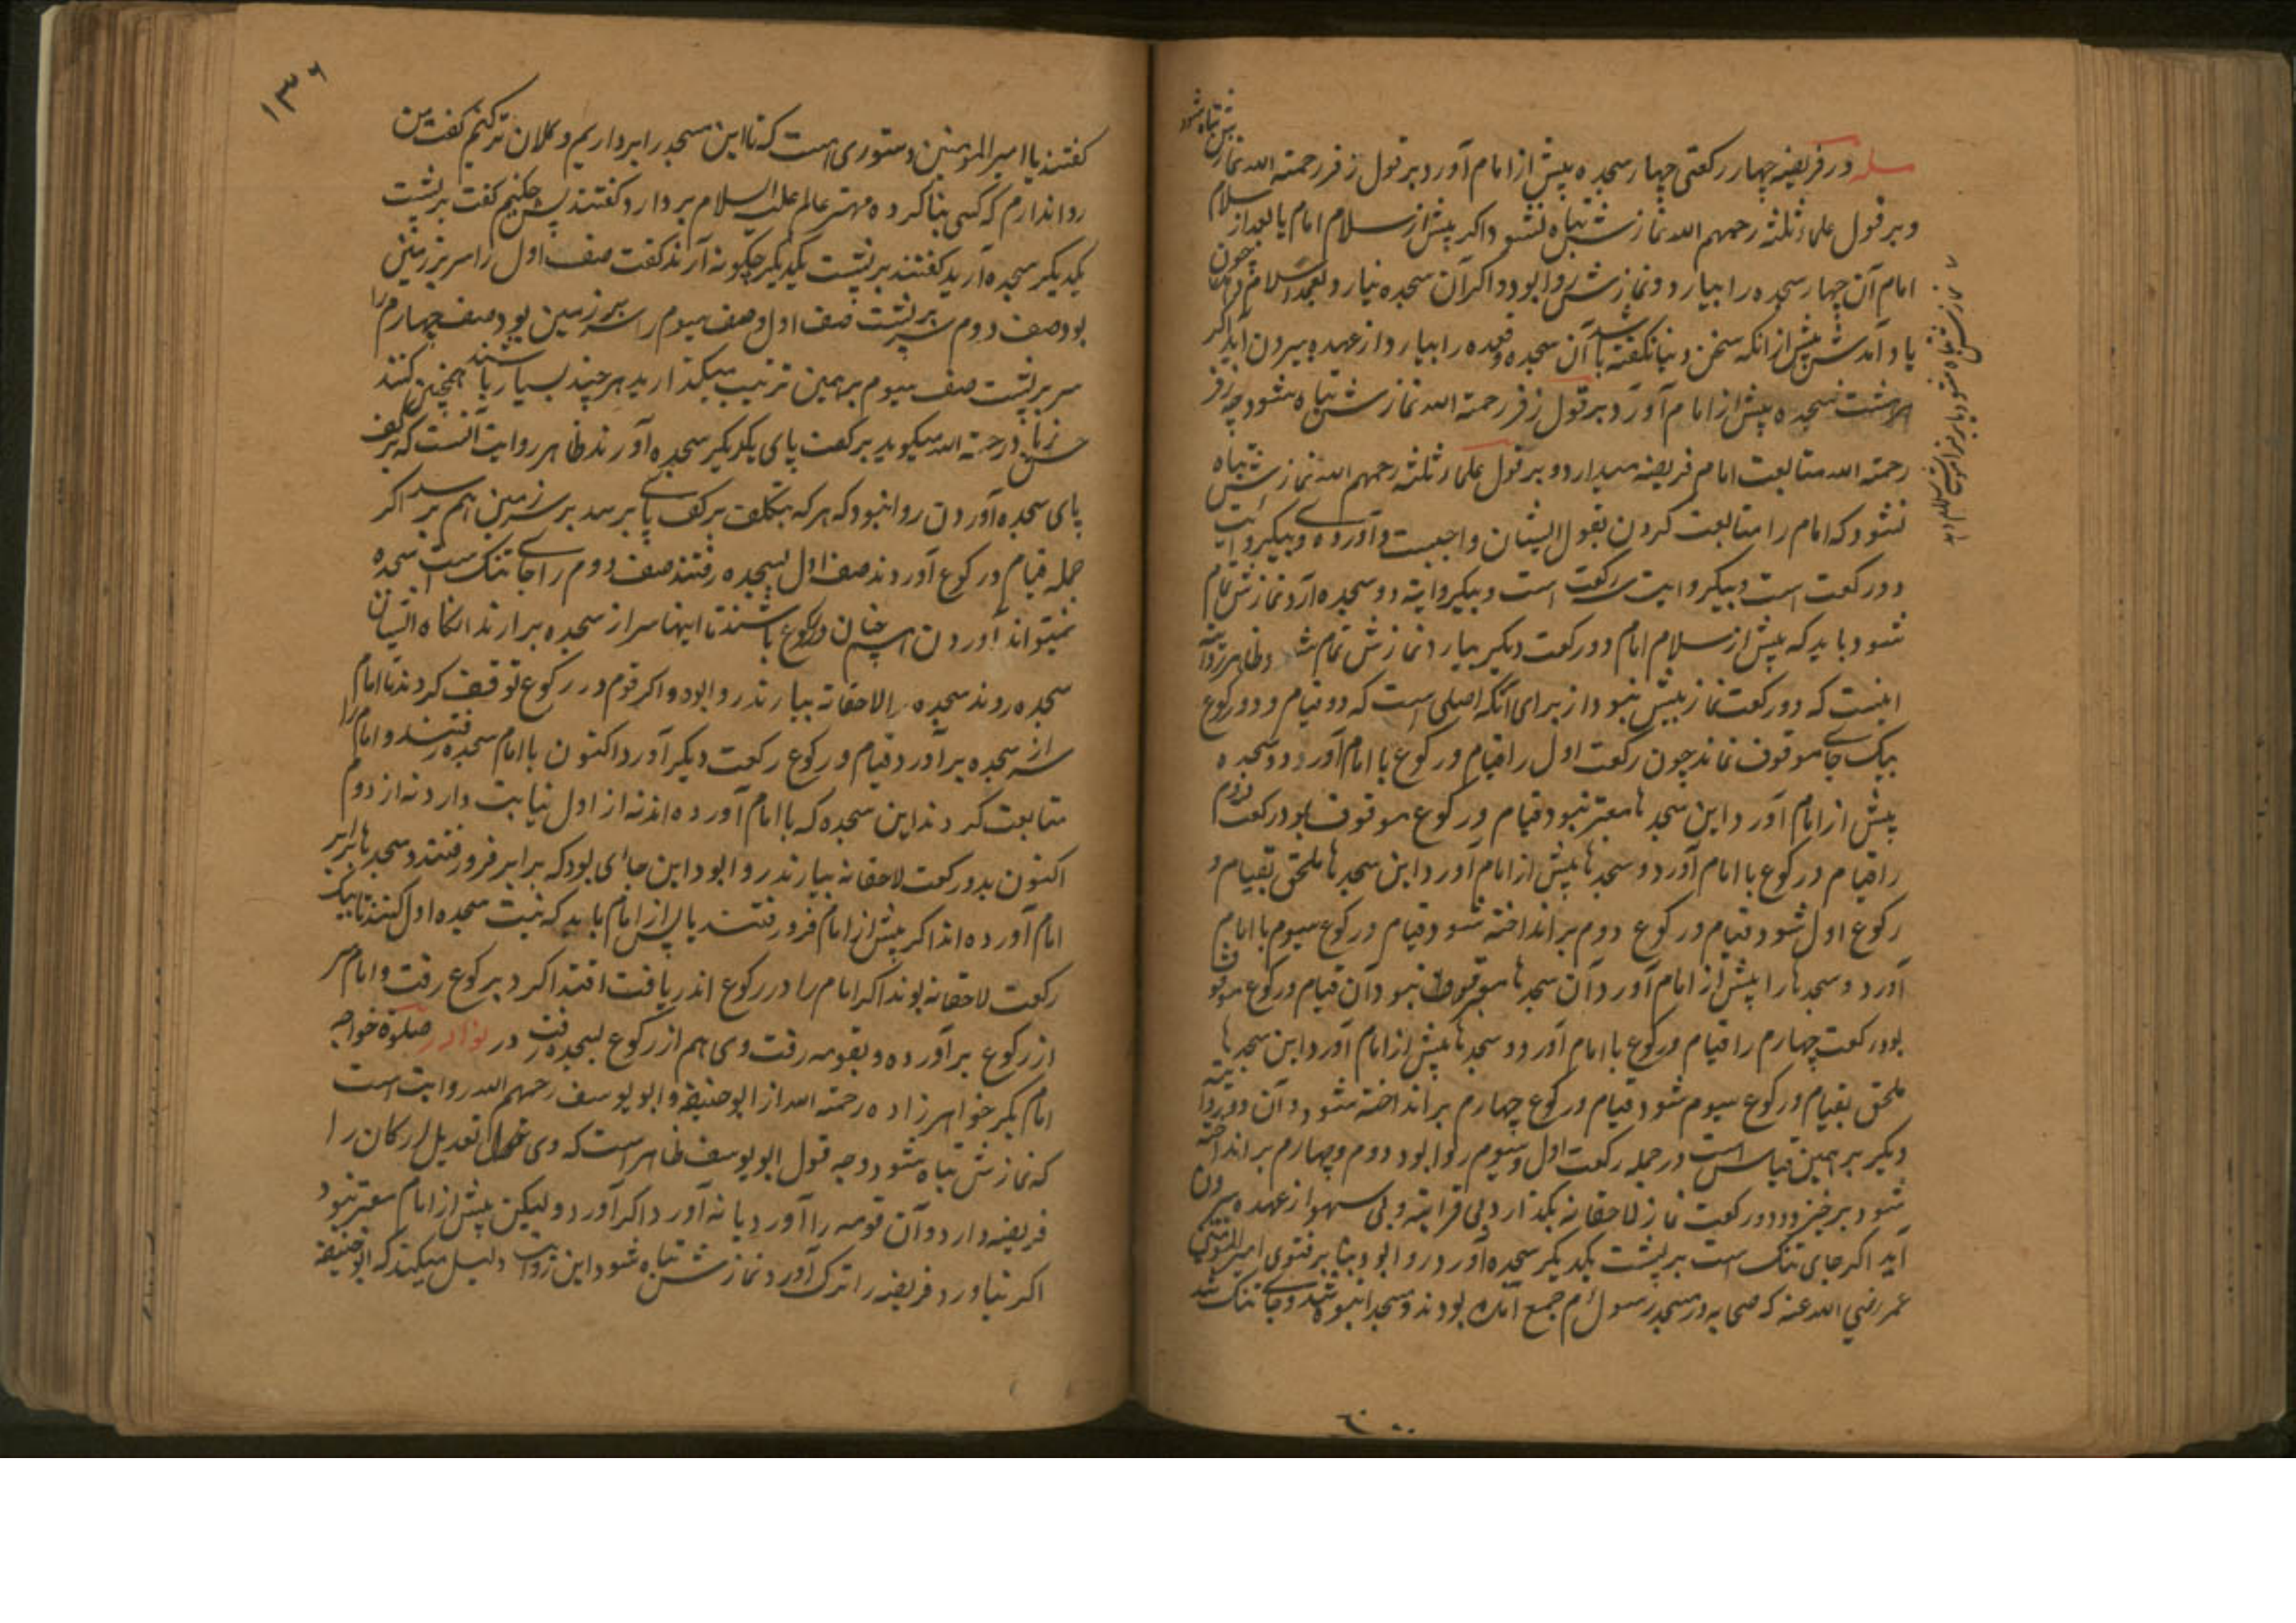 مسله در فریضه چهار رکعتی چهار سجده پیش از امام آورد بر قول زفر رحمته الله نمازش تباه شود
و بر قول علماء ثلثه رحمهم الله نمازش تباه نشود اگر پیش از سلام امام یا بعد از سلام
امام آن چهار سجده را بیارد و نمازش روا بود و اگر آن سجده نیارد و بعد سلام چون
یاد آمدش پیش از انکه سخن دنیا نگفته باشد آن سجده و قعده را بیارد از عهده بیرون آید اگر
هر هشت سجده پیش از امام آورد بر قول زفر رحمته الله نمازش تباه شود چه زفر
رحمته الله متابعت امام فریضه میدارد و بر قول علماء ثلثه رحمهم الله نمازش تباه
نشود که امام را متابعت کردن بقول ایشان واجبست و آورده و بیکروایت
دو رکعت است و بیکروایت سه رکعت است و بیکروایته دو سجده آرد نمازش تمام
شود باید که پیش از سلام امام دو رکعت دیگر بیارد نمازش تمام شد و ظاهر روایته
اینست که دو رکعت نماز بیش نبود از برای آنکه اصلی است که دو قیام و دو رکوع
بیک جای موقوف نماند چون رکعت اول را قیام و رکوع با امام آورد و دو سجده
پیش از امام آورد این سجدها معتبر نبود قیام و رکوع موقوف بود رکعت دوم
را قیام و رکوع با امام آورد و سجدها پیش از امام آورد این سجدها ملحق بقیام و
رکوع اول شود قیام و رکوع دوم بر انداخته شود قیام و رکوع سیوم با امام
آورد و سجدها را پیش از امام آورد آن سجدها نبود آن قیام و رکوع موقوف
بود رکعت چهارم را قیام و رکوع با امام آورد و سجدها پیش از امام آورد این سجدها
ملحق بقیام و رکوع سیوم شود قیام و رکوع چهارم بر انداخته شود و آن دو روایته
دیگر بر همین قیاس است در جمله رکعت اول و سیوم روا بود دوم و چهارم بر انداخته
شود برخیزد و دو رکعت نماز لاحقانه بگذارد بی قراته و بی سهو از عهده بیرون
آید اگر جای تنک است بر پشت یکدیگر سجده آورد روا بود بنا بر فتوی امیر المؤمنین
عمر رضی الله عنه که صحابه در مسجد رسول جمع آمده بودند و مسجد انبوه شد و جای تنک شد
نمازش تباه شود
۱۳۶
کفتند یا امیر المومنین دستوری است که تا این مسجد را برداریم و کلان تر کنیم کفت من
روا ندارم که کسی بنا کرده مهتر عالم علیه السلام بردارد کفتند پس چکنیم کفت بر پشت
یکدیگر سجده آرید کفتند بر پشت یکدیگر چکونه آرند کفت صف اول را سر بر زمین
بود صف دوم سر بر پشت صف اول و صف سیوم را سر بر زمین بود صف چهارم را
سر بر پشت صف سیوم بر همین ترتیب میکذارید هر چند بسیار باشند همچنین کنند
حسن زیاد رحمته الله میکوید بر کعت پای یکدیگر سجده آورند ظاهر روایت آنست که بر کف
پای سجده آوردن روا نبود که هر که بتکلف بر کف پای برسد بر سر زمین هم برسد اگر
جمله قیام و رکوع آوردند صف اول بسجده رفتند صف دوم را جای تنک است سجده
نمیتواند آوردن همچنان در رکوع باشند تا اینها سر از سجده برارند انکاه ایشان
سجده روند سجده را لاحقانه بیارند روا بود و اگر قوم در رکوع توقف کردند تا امام
سر از سجده برآورد قیام و رکوع رکعت دیگر آورد اکنون با امام سجده رفتند و امام را
متابعت کردند این سجده که با امام آورده اند نه از اول نیابت دارد نه از دوم
اکنون بدو رکعت لاحقانه بیارند روا بود این جائی بود که برابر فرو رفتند و سجدها برابر
امام آورده اند اگر پیش از امام فرو رفتند یا پس از امام باید که نیت سجده اول کنند تا بیک
رکعت لاحقانه بوند اگر امام را در رکوع اندریافت اقتدا کرد برکوع رفت و امام سر
از رکوع برآورده و بقومه رفت وی هم از رکوع بسجده رفت در نوادر صلوة خواجه
امام بکر خواهر زاده رحمته الله از ابو حنیفه و ابو یوسف رحمهم الله روایت است
که نمازش تباه شود و وجه قول ابو یوسف ظاهر است که وی تعدیل ارکان را
فریضه دارد و آن قومه را آورد یا نه آورد اگر آورد و لیکن پیش از امام معتبر نبود
اکر نیاورد فریضه را ترک آورد نمازش تباه شود این روایت دلیل میکند که ابو حنیفه